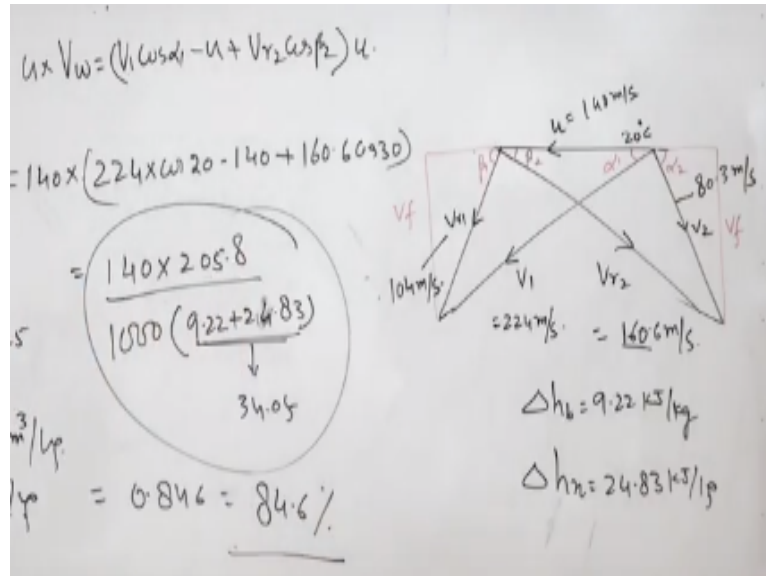 u × Vw = (V₁cosα₁ - u + Vr₂cosβ₂)u.
= 140×(224×cos20 - 140 + 160.6cos30)
= 140×205.8
1000(9.22+24.83)
34.05
.5
m³/kg.
= 0.846 = 84.6%
u = 140m/s
20°
β₁ β₂ α₁ α₂
80.3m/s
Vf Vr₁ V₂ Vf
104m/s.
V₁ Vr₂
=224m/s. = 160.6m/s.
Δhb = 9.22 kJ/kg
Δhn = 24.83 kJ/kg